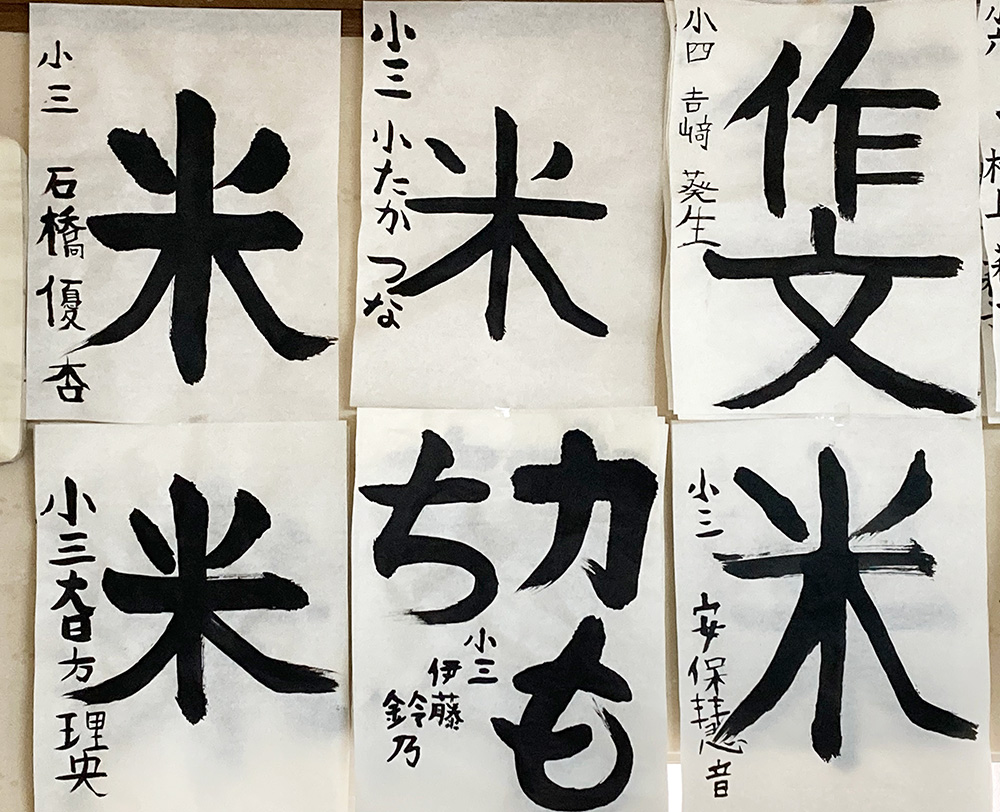 米
小三 石橋 優杏
米
小三 小たか つな
作文
小四 吉﨑 葵生
米
小三 大日方 理央
力も
ち
小三
伊藤
鈴乃
米
小三 安保 慧音